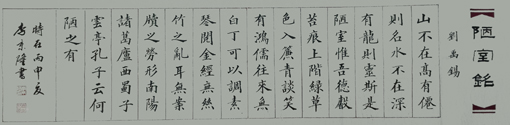 陋室銘
劉禹錫
山不在高有僊
則名水不在深
有龍則靈斯是
陋室惟吾德馨
苔痕上階綠草
色入簾青談笑
有鴻儒往來無
白丁可以調素
琴閱金經無絲
竹之亂耳無案
牘之勞形南陽
諸葛廬西蜀子
雲亭孔子云何
陋之有
時在丙申夏
李京隆書